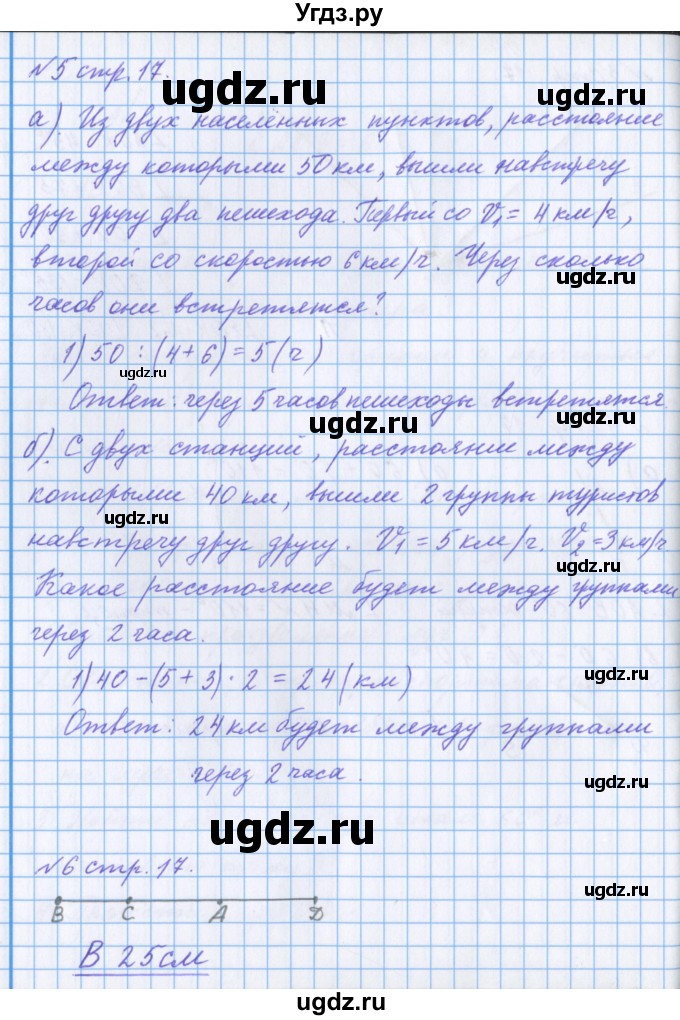 Угдз.ру
№5 стр. 17.
ugdz.ru
ugdz.ru
а). Из двух населённых пунктов, расстояние
между которыми 50 км, вышли навстречу
ugdz.ru
друг другу два пешехода. Первый со V₁ = 4 км/ч,
второй со скоростью 6 км/ч. Через сколько
ugdz.ru
часов они встретятся?
1) 50 : (4+6) = 5 (ч)
ugdz.ru
Ответ: через 5 часов пешеходы встретятся.
ugdz.ru
б). С двух станций, расстояние между
ugdz.ru
которыми 40 км, вышли 2 группы туристов
ugdz.ru
навстречу друг другу. V₁ = 5 км/ч. V₂ = 3 км/ч
ugdz.ru
Какое расстояние будет между группами
через 2 часа.
1) 40 - (5 + 3) · 2 = 24 (км)
ugdz.ru
Ответ: 24 км будет между группами
ugdz.ru
через 2 часа.
ugdz.ru
ugdz.ru
№6 стр. 17.
ugdz.ru
ugdz.ru
В С А D
В 25 см
ugdz.ru